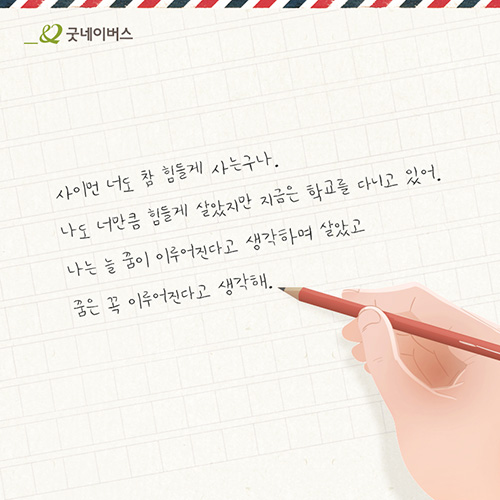 굿네이버스
사이먼 너도 참 힘들게 사는구나.
나도 너만큼 힘들게 살았지만 지금은 학교를 다니고 있어.
나는 늘 꿈이 이루어진다고 생각하며 살았고
꿈은 꼭 이루어진다고 생각해.